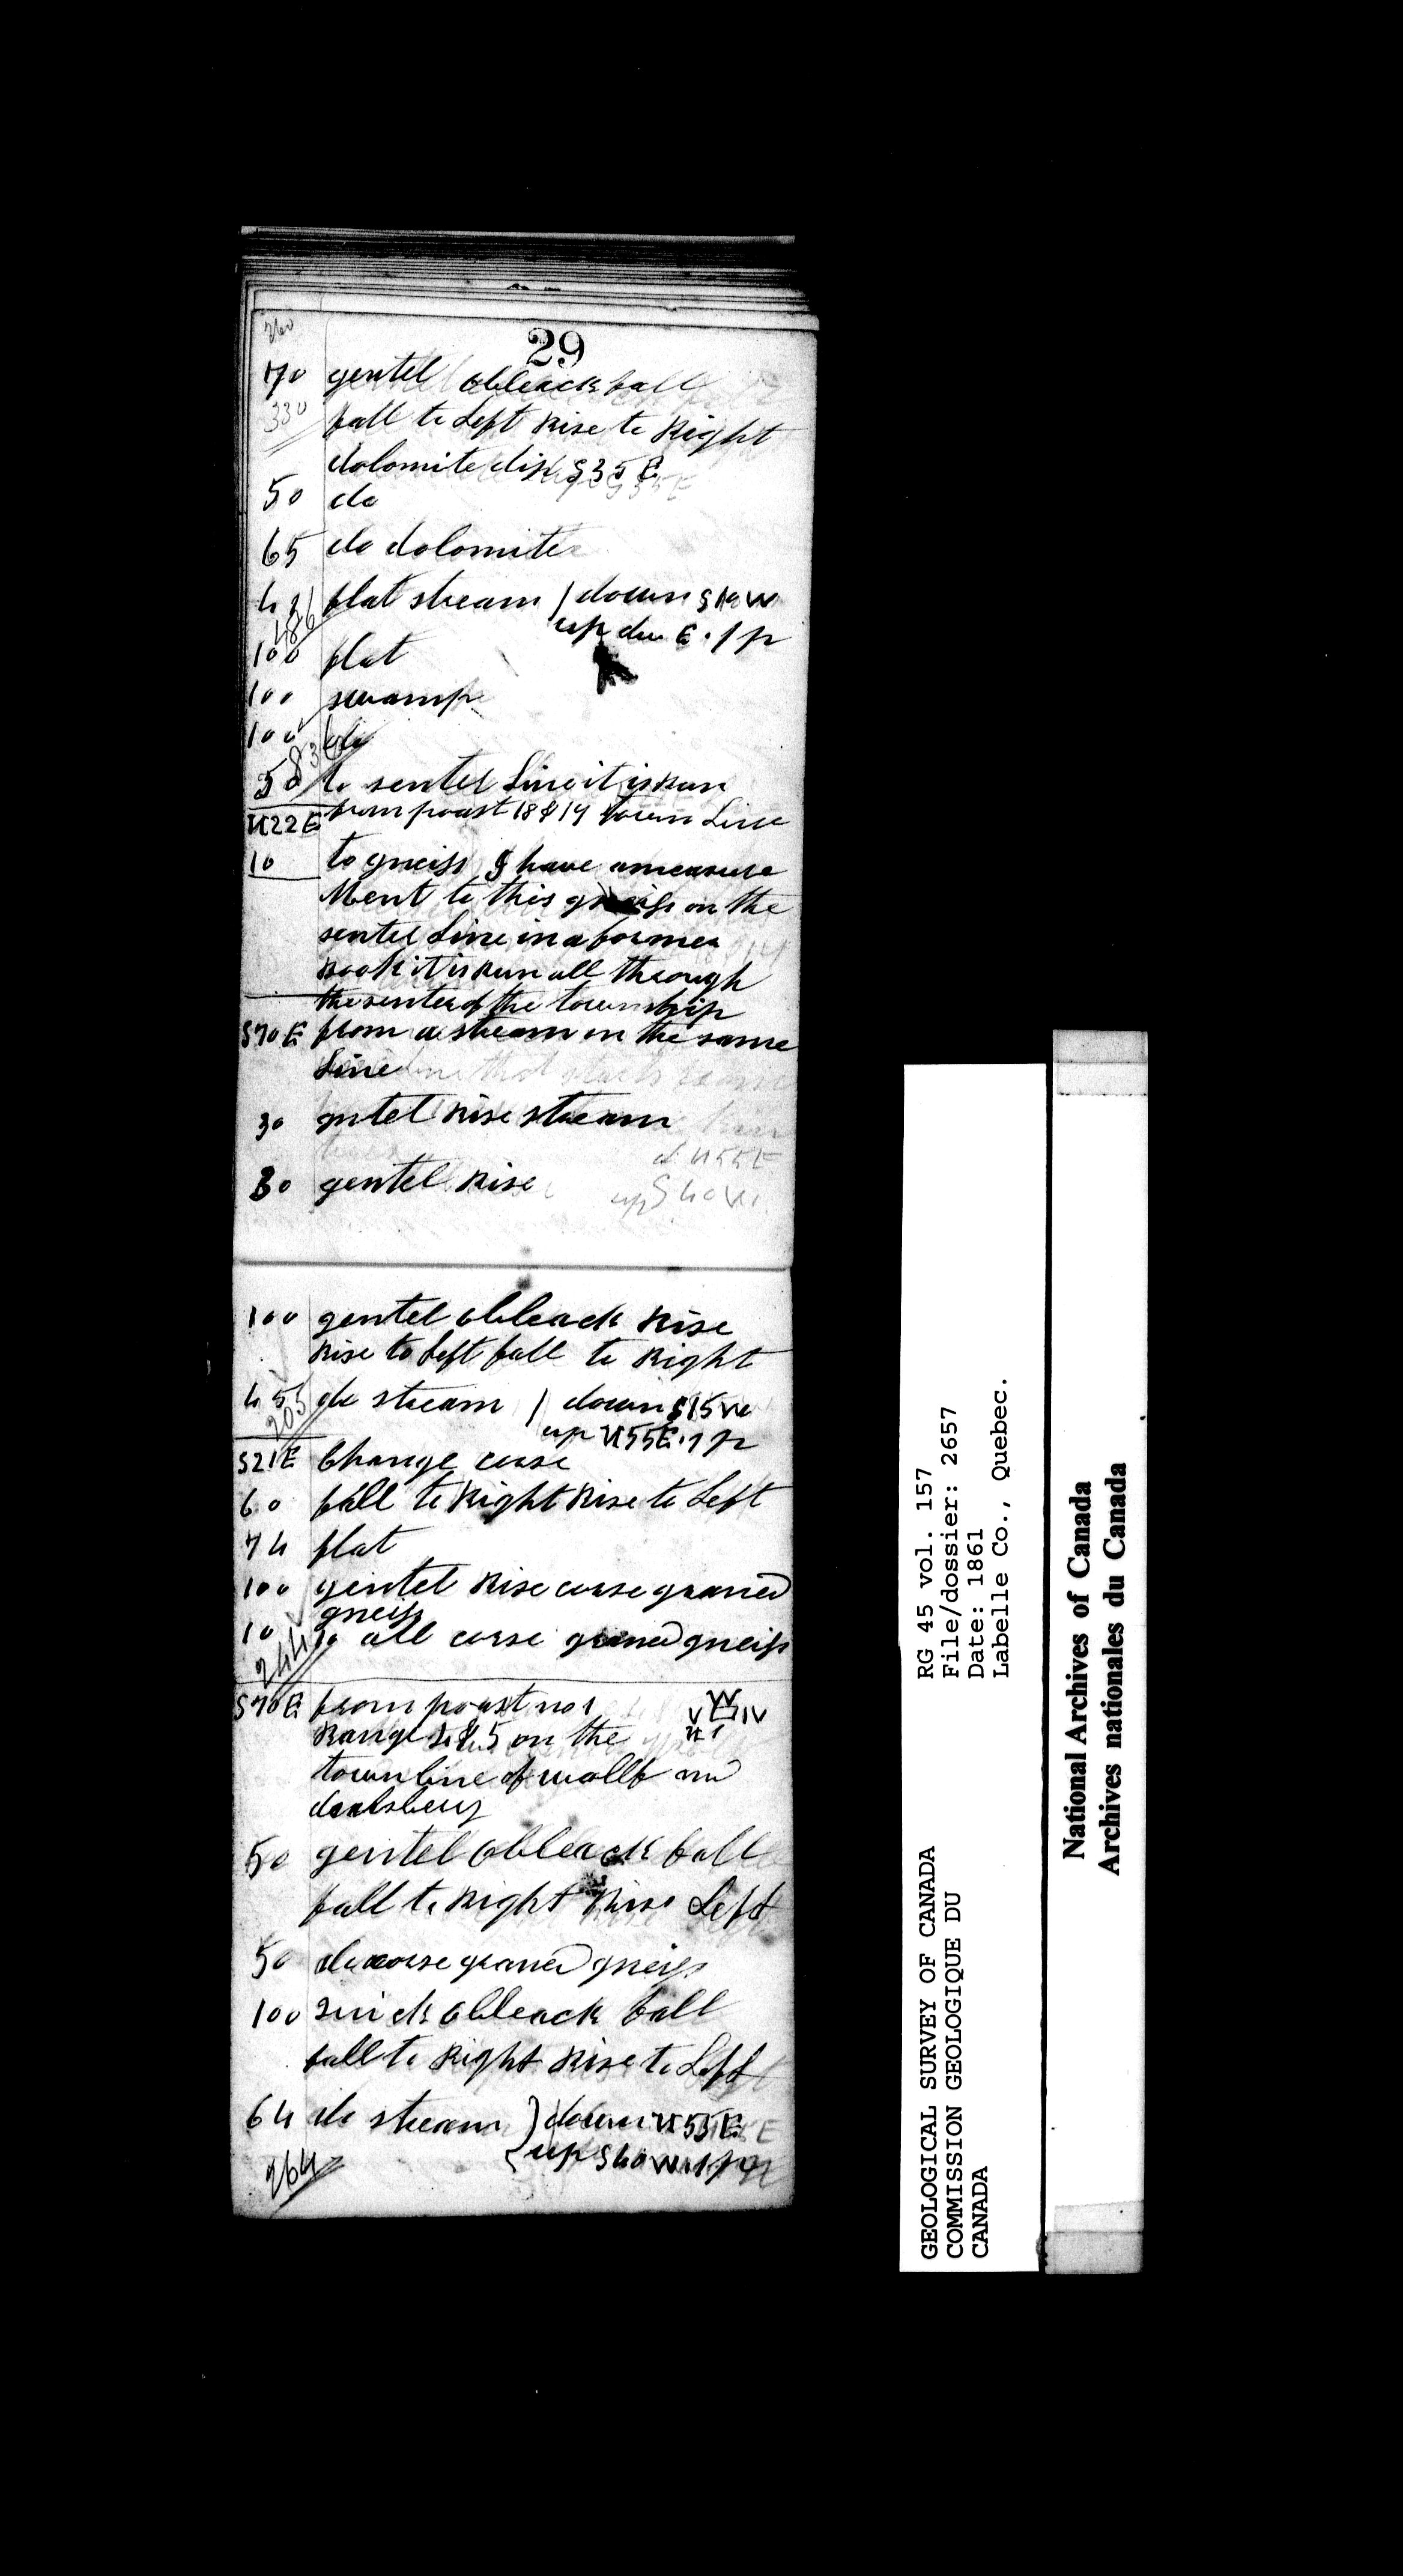 260
29
70 gentel obleack fall
330 fall to Left Rise to Right
dolomite dip S35E
50 do
65 do dolomite
41 flat stream / down S10W
486 up du E . 1 p
100 flat
100 swamp
100 do
836
50 to senter Line it is Run
N22E from poast 18 & 19 town Line
10 to gneiss I have a measure
Ment to this gneiss on the
senter Line in a former
Book it is Run all through
the senter of the township
S70E from a stream on the same
Line
30 gntel Rise stream
d N55E
80 gentel Rise up S40W
100 gentel obleack Rise
Rise to Left fall to Right
45 do stream / down S15W
205 up N55E . 1 p
S21E Change corse
60 fall to Right Rise to Left
74 flat
100 gentel Rise corse graned
gneiss
10 to all corse graned gneiss
244
S70E from poast no 1 V IV
Range 4 & 5 on the N 1
town line of wollf and
50 gentel obleack fall
fall to Right Rise Left
50 do corse graned gneiss
100 quick obleack fall
fall to Right Rise to Left
64 do stream } down N55E
264 { up S40W . 1 p
GEOLOGICAL SURVEY OF CANADA
COMMISSION GEOLOGIQUE DU
CANADA
RG 45 vol. 157
File/dossier: 2657
Date: 1861
Labelle Co., Quebec.
National Archives of Canada
Archives nationales du Canada